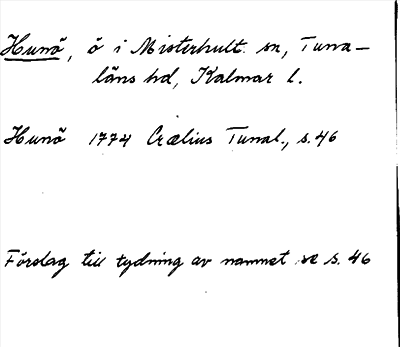 Hunö, ö i Misterhult sn, Tuna-
läns hd, Kalmar l.
Hunö 1774 Crælius Tunal., s. 46
Förslag till tydning av namnet se s. 46